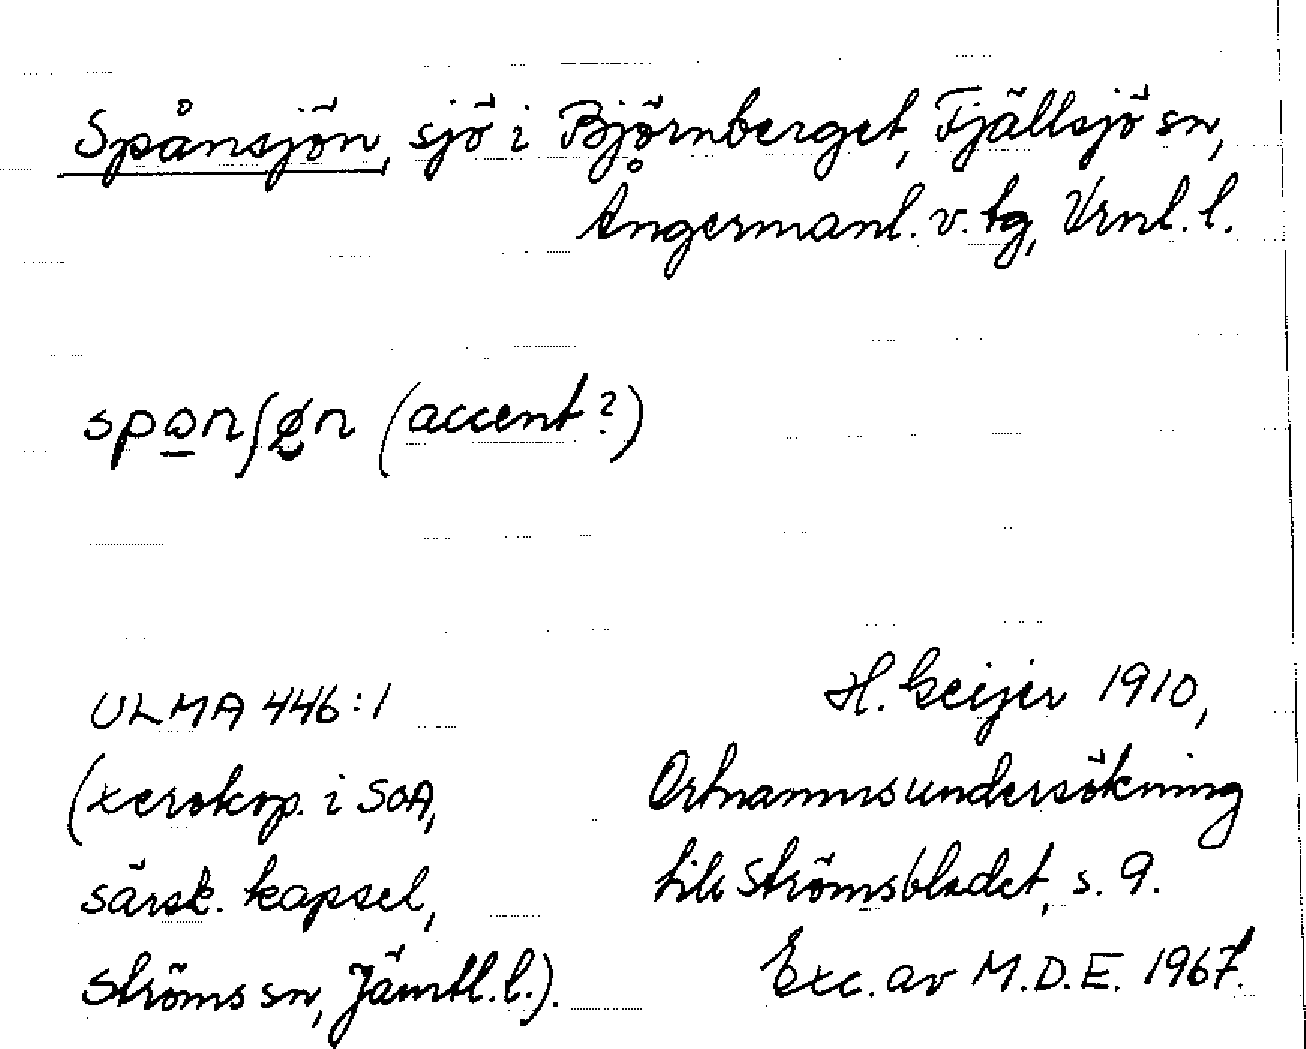 Spånsjön, sjö i Björnberget, Fjällsjö sn,
Ångermanl. v. tg, Vrnl. l.
(accent?)
ULMA 446:1
(xerokop. i SOA,
särsk. kapsel,
Ströms sn, Jämtl. l.).
H. Geijer 1910,
Ortnamnsundersökning
till Strömsbladet, s. 9.
Exc. av M.D.E. 1967.